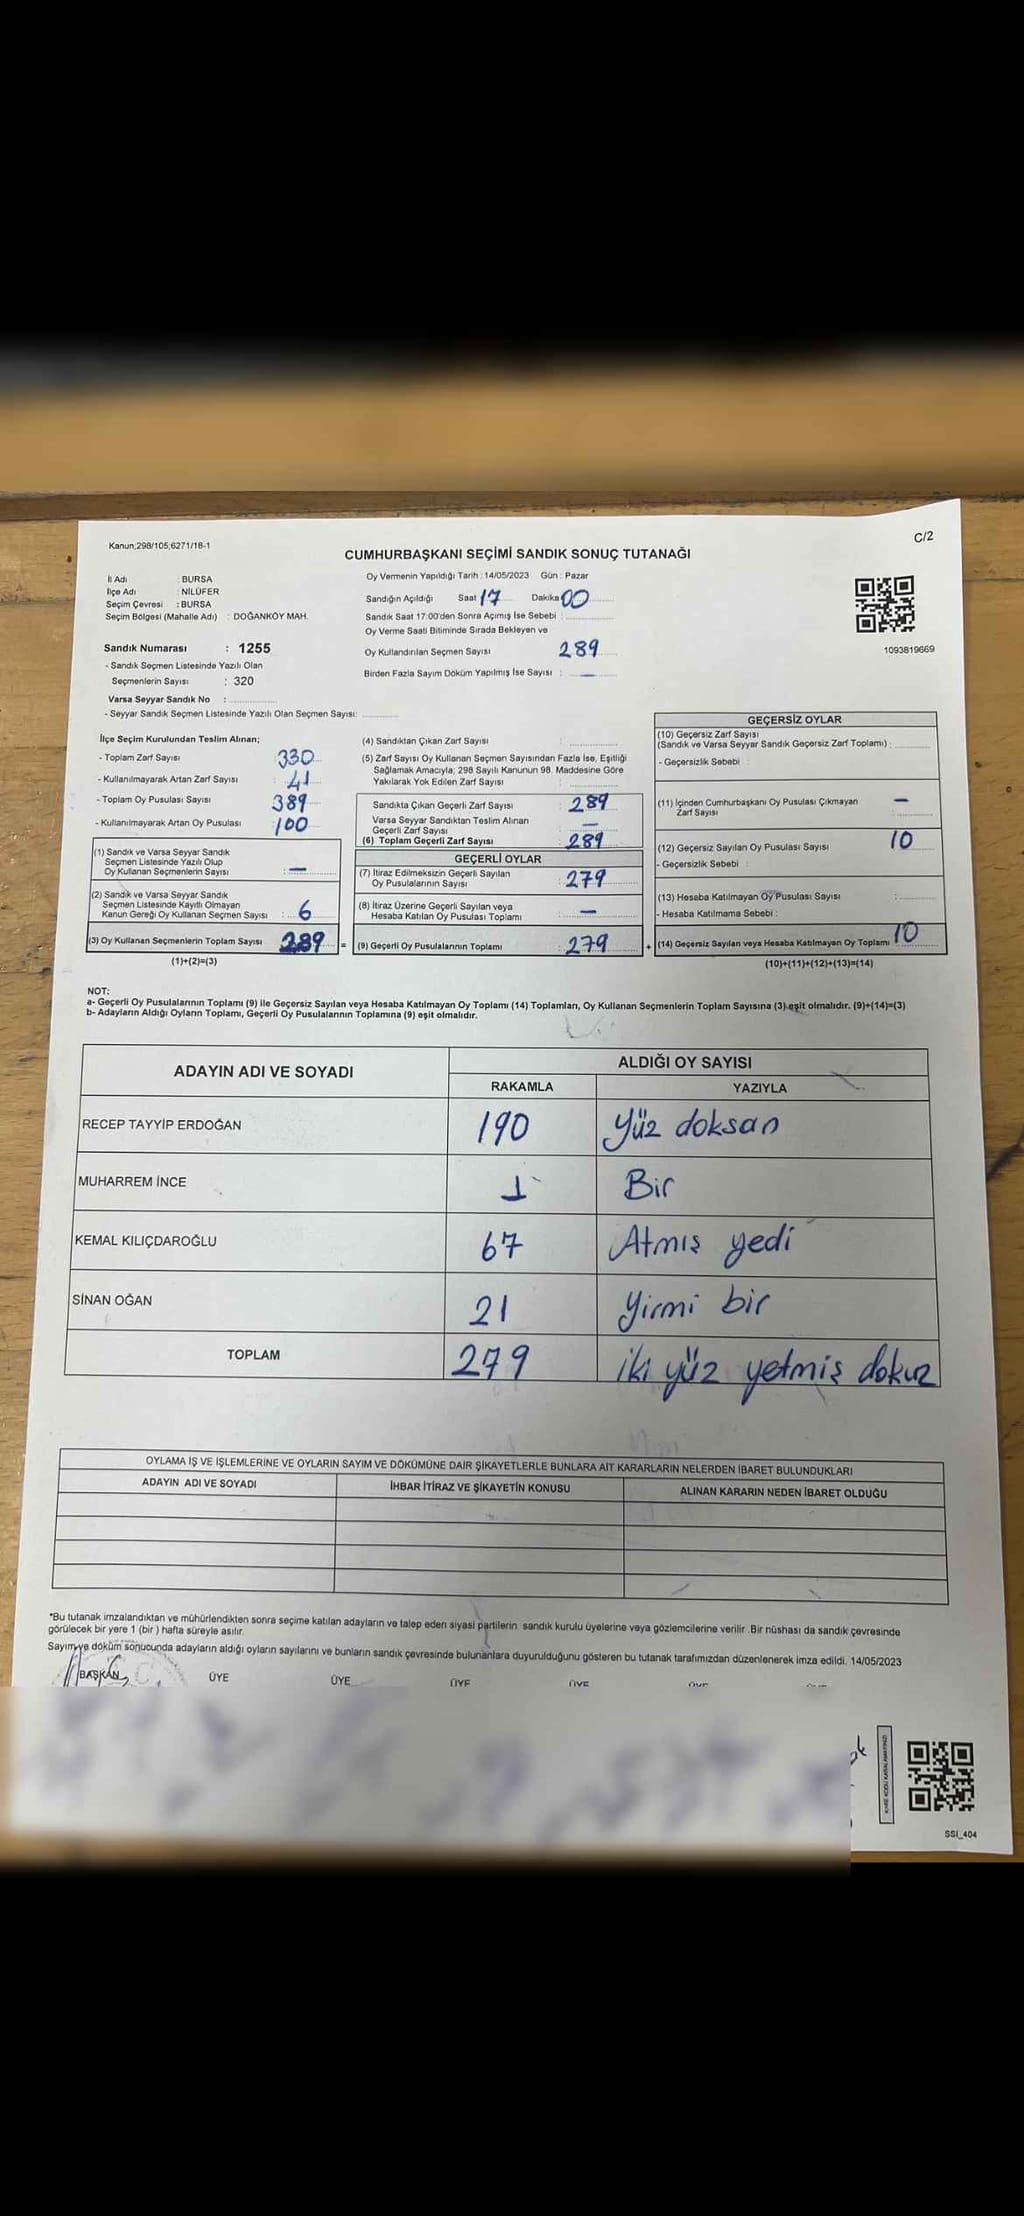 Kanun;298/105;6271/18-1
C/2
CUMHURBAŞKANI SEÇİMİ SANDIK SONUÇ TUTANAĞI
İl Adı : BURSA
İlçe Adı : NİLÜFER
Seçim Çevresi : BURSA
Seçim Bölgesi (Mahalle Adı) : DOĞANKÖY MAH.
Sandık Numarası : 1255
- Sandık Seçmen Listesinde Yazılı Olan
Seçmenlerin Sayısı : 320
Varsa Seyyar Sandık No :
- Seyyar Sandık Seçmen Listesinde Yazılı Olan Seçmen Sayısı:
Oy Vermenin Yapıldığı Tarih : 14/05/2023 Gün : Pazar
Sandığın Açıldığı Saat 17 Dakika 00
Sandık Saat 17:00'den Sonra Açımış İse Sebebi :
Oy Verme Saati Bitiminde Sırada Bekleyen ve
Oy Kullandırılan Seçmen Sayısı 289
Birden Fazla Sayım Döküm Yapılmış İse Sayısı : —
1093819669
İlçe Seçim Kurulundan Teslim Alınan;
- Toplam Zarf Sayısı : 330
- Kullanılmayarak Artan Zarf Sayısı : 41
- Toplam Oy Pusulası Sayısı : 389
- Kullanılmayarak Artan Oy Pusulası : 100
(1) Sandık ve Varsa Seyyar Sandık
Seçmen Listesinde Yazılı Olup
Oy Kullanan Seçmenlerin Sayısı : —
(2) Sandık ve Varsa Seyyar Sandık
Seçmen Listesinde Kayıtlı Olmayan
Kanun Gereği Oy Kullanan Seçmen Sayısı : 6
(3) Oy Kullanan Seçmenlerin Toplam Sayısı 289 =
(1)+(2)=(3)
(4) Sandıktan Çıkan Zarf Sayısı :
(5) Zarf Sayısı Oy Kullanan Seçmen Sayısından Fazla İse, Eşitliği
Sağlamak Amacıyla; 298 Sayılı Kanunun 98. Maddesine Göre
Yakılarak Yok Edilen Zarf Sayısı :
Sandıkta Çıkan Geçerli Zarf Sayısı : 289
Varsa Seyyar Sandıktan Teslim Alınan
Geçerli Zarf Sayısı : —
(6) Toplam Geçerli Zarf Sayısı : 289
GEÇERLİ OYLAR
(7) İtiraz Edilmeksizin Geçerli Sayılan
Oy Pusulalarının Sayısı : 279
(8) İtiraz Üzerine Geçerli Sayılan veya
Hesaba Katılan Oy Pusulası Toplamı : —
(9) Geçerli Oy Pusulalarının Toplamı : 279 +
GEÇERSİZ OYLAR
(10) Geçersiz Zarf Sayısı
(Sandık ve Varsa Seyyar Sandık Geçersiz Zarf Toplamı) :
- Geçersizlik Sebebi :
(11) İçinden Cumhurbaşkanı Oy Pusulası Çıkmayan
Zarf Sayısı : —
(12) Geçersiz Sayılan Oy Pusulası Sayısı : 10
- Geçersizlik Sebebi :
(13) Hesaba Katılmayan Oy Pusulası Sayısı :
- Hesaba Katılmama Sebebi :
(14) Geçersiz Sayılan veya Hesaba Katılmayan Oy Toplamı 10
(10)+(11)+(12)+(13)=(14)
NOT:
a- Geçerli Oy Pusulalarının Toplamı (9) ile Geçersiz Sayılan veya Hesaba Katılmayan Oy Toplamı (14) Toplamları, Oy Kullanan Seçmenlerin Toplam Sayısına (3) eşit olmalıdır. (9)+(14)=(3)
b- Adayların Aldığı Oyların Toplamı, Geçerli Oy Pusulalarının Toplamına (9) eşit olmalıdır.
ADAYIN ADI VE SOYADI
ALDIĞI OY SAYISI
RAKAMLA YAZIYLA
RECEP TAYYİP ERDOĞAN 190 Yüz doksan
MUHARREM İNCE 1 Bir
KEMAL KILIÇDAROĞLU 67 Atmış yedi
SİNAN OĞAN 21 Yirmi bir
TOPLAM 279 iki yüz yetmiş dokuz
OYLAMA İŞ VE İŞLEMLERİNE VE OYLARIN SAYIM VE DÖKÜMÜNE DAİR ŞİKAYETLERLE BUNLARA AİT KARARLARIN NELERDEN İBARET BULUNDUKLARI
ADAYIN ADI VE SOYADI İHBAR İTİRAZ VE ŞİKAYETİN KONUSU ALINAN KARARIN NEDEN İBARET OLDUĞU
*Bu tutanak imzalandıktan ve mühürlendikten sonra seçime katılan adayların ve talep eden siyasi partilerin sandık kurulu üyelerine veya gözlemcilerine verilir. Bir nüshası da sandık çevresinde
görülecek bir yere 1 (bir ) hafta süreyle asılır.
Sayım ve döküm sonucunda adayların aldığı oyların sayılarını ve bunların sandık çevresinde bulunanlara duyurulduğunu gösteren bu tutanak tarafımızdan düzenlenerek imza edildi. 14/05/2023
BAŞKAN ÜYE ÜYE ÜYE ÜYE
SSI_404